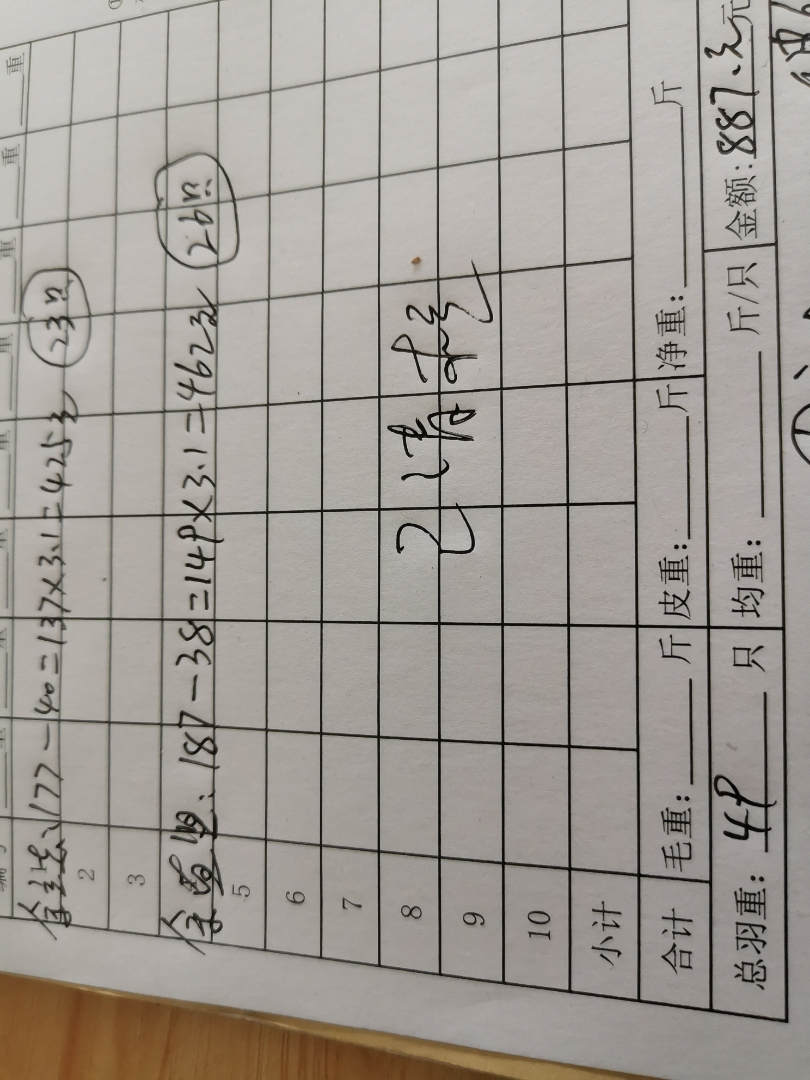 重 重 重 重 重 重 重 重
177-40=137×3.1=425元 23只
2
3
187-38=149×3.1=462元 26只
5
6
7
8 已清
9
10
小计
合计 毛重:____斤 皮重:____斤 净重:____斤
总羽重: 49 只 均重:____斤/只 金额: 887.元元